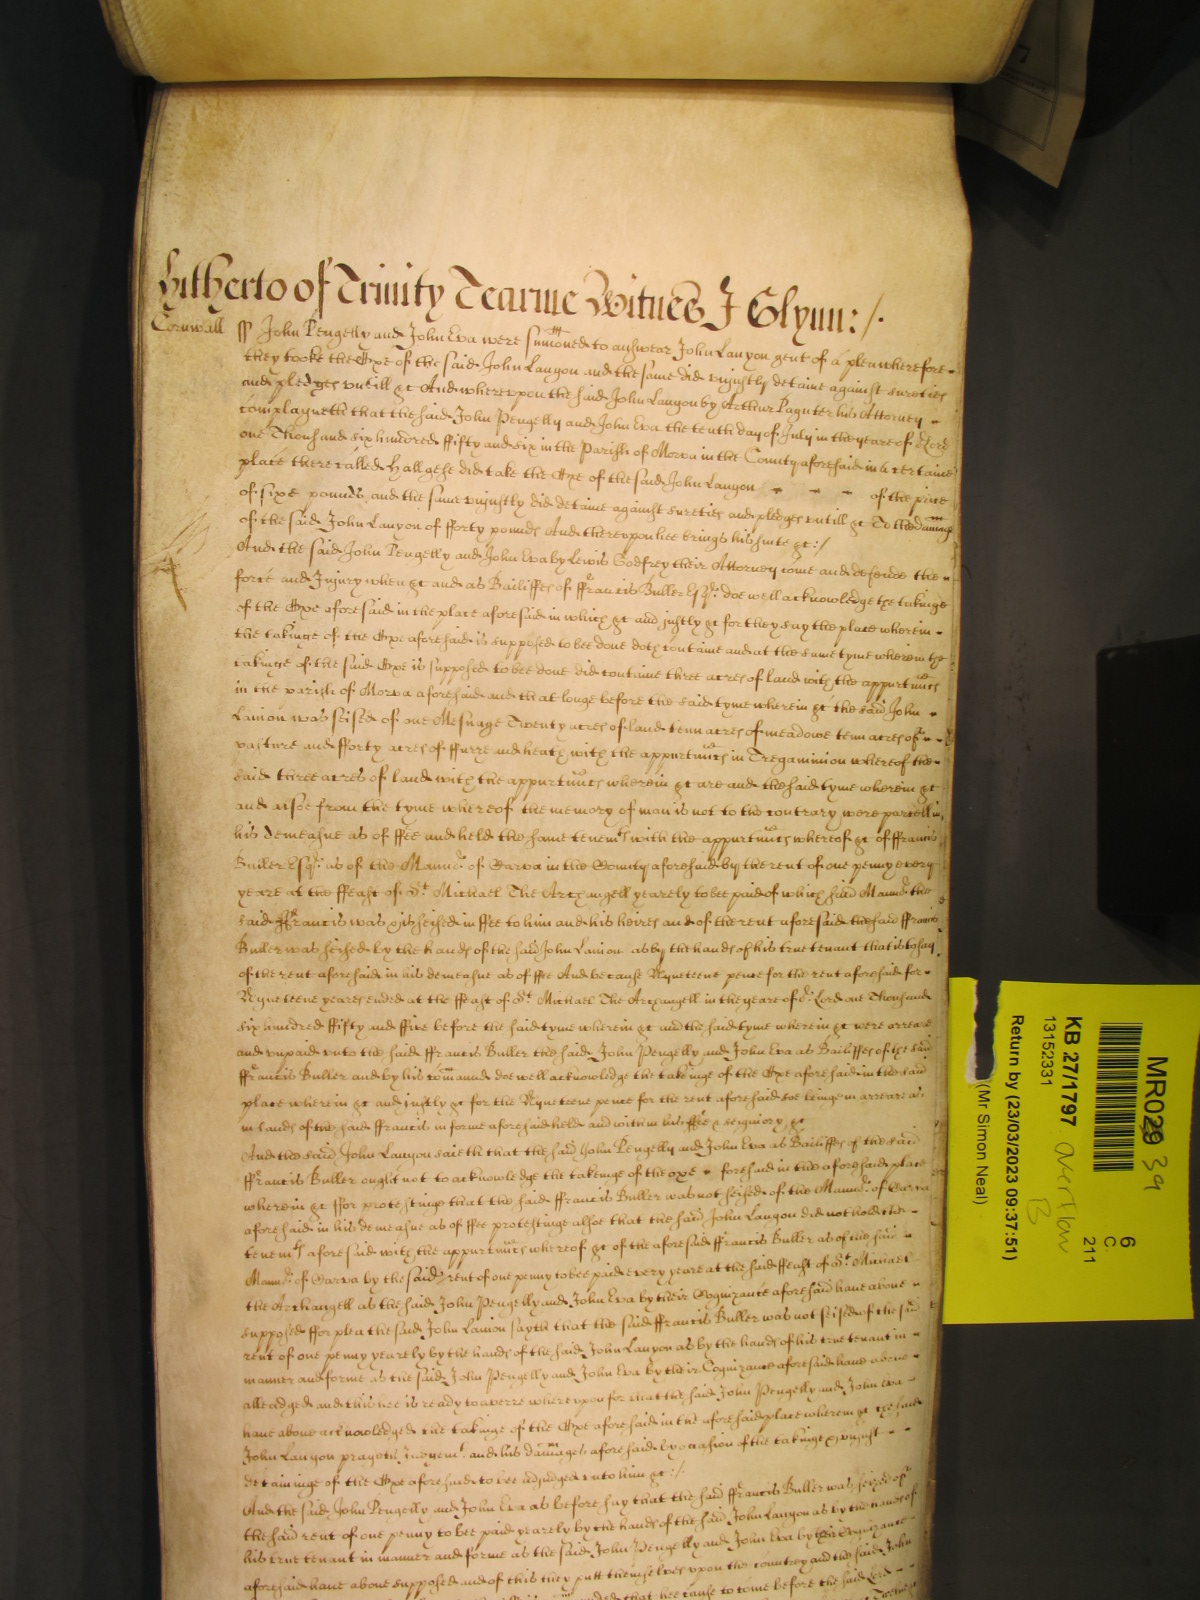 Hitherto of Trinity Tearme Witnes J Glynn:/.
Cornwall ss John Pengelly and John Eva were sumoned to answear John Lanyon gent of a plea wherefore
they tooke the Oxe of the said John Lanyon and the same did uniustly detaine against sureties
and pledges untill &c And whereupon the said John Lanyon by Arthur Paynter his Attorney
complayneth that the said John Pengelly and John Eva the tenth day of July in the yeare of or Lord
one Thousand six hundred fifty and six in the Parish of Morva in the County aforesaid in a certaine
place there called Hallgehe did take the Oxe of the said John Lanyon of the price
of sixe pounds and the same uniustly did detaine against sureties and pledges untill &c To the damage
of the said John Lanyon of fforty pounds And thereupon hee brings his suite &c:/
And the said John Pengelly and John Eva by Lewis Godfrey their Attorney come and defende the
force and Injury when &c and as Bailiffes of ffrancis Buller Esqr. doe well acknowledge the takinge
of the Oxe aforesaid in the place aforesaid in which &c and justly &c for they say the place wherein
the takinge of the Oxe aforesaid is supposed to bee done doth containe and at the same tyme wherein the
takinge of the said Oxe is supposed to bee done did containe three acres of land with the appurtnncs
in the parish of Morva aforesaid and that longe before the said tyme wherein &c the said John
Lanion was seised of one Mesuage Twenty acres of land tenn acres of meadowe tenn acres of
pasture and fforty acres of ffurze and heath with the appurtnncs in Tregaminion whereof the
said three acres of land with the appurtnncs wherein &c are and the said tyme wherein &c
and alsoe from the tyme whereof the memory of man is not to the contrary were parcell in
his demeasne as of ffee and held the same tenemts with the appurtnncs whereof &c of ffrancis
Buller Esqr. as of the Mannor. of Carva in the County aforesaid by the rent of one penny every
yeare at the ffeast of St Michael The Archangell yearely to bee paid of which said Mannor. the
said ffrancis was seised in ffee to him and his heires and of the rent aforesaid the said ffrancis
Buller was seised by the hands of the said John Lanion as by the hands of his true tenant that is to say
of the rent aforesaid in his demeasne as of ffee And because Nyneteene pence for the rent aforesaid for
Nyneteene yeares ended at the ffeast of St Michael The Archangell in the yeare of or Lord one Thousand
six hundred ffifty and ffive before the said tyme wherein &c and the said tyme wherein &c were arreare
and unpaid unto the said ffrancis Buller the said John Pengelly and John Eva as Bailiffes of the said
ffrancis Buller and by his comannd doe well acknowledge the takeinge of the Oxe aforesaid in the said
place wherein &c and justly &c for the Nyneteene pence for the rent aforesaid soe beinge in arreare as
in lands of the said ffrancis in forme aforesaid held and within his ffee & seigniory &c
And the said John Lanyon saieth that the said John Pengelly and John Eva as Bailiffes of the said
ffrancis Buller ought not to acknowledge the takeinge of the oxe foresaid in the aforesaid place
wherein &c ffor protestinge that the said ffrancis Buller was not seised of the Mannor. of Carva
aforesaid in his demeasne as of ffee protestinge alsoe that the said John Lanyon did not hold the
tenemts aforesaid with the appurtnncs whereof &c of the aforesaid ffrancis Buller as of the said
Mannor. of Carva by the said rent of one penny to bee paid every yeare at the said ffeast of St Michael
the Archangell as the said John Pengelly and John Eva by their Cognizance aforesaid have above
supposed ffor plea the said John Lanion sayth that the said ffrancis Buller was not seised of the said
rent of one penny yearely by the hands of the said John Lanyon as by the hands of his true tenant in
manner and forme as the said John Pengelly and John Eva by their Cognizance aforesaid have above
alleadged and this hee is ready to averre whereupon for that the said John Pengelly and John Eva
have above acknowledged the takinge of the Oxe aforesaid in the aforesaid place wherein &c the said
John Lanyon prayeth Judgemt. and his damages aforesaid by occasion of the takinge & uniust
detaininge of the Oxe aforesaid to bee adjudged unto him &c:/.
And the said John Pengelly and John Eva as before say that the said ffrancis Buller was seised of
the said rent of one penny to bee paid yearely by the hands of the said John Lanyon as by the hands of
his true tenant in manner and forme as the said John Pengelly and John Eva by their Cognizance
aforesaid have above supposed and of this they putt themselves upon the countrey and the said John
that hee cause to come before the said Lord
MR029 39
6
C.
211
KB 27/1797 overflow
B
13152331
Return by (23/03/2023 09:37:51)
(Mr Simon Neal)